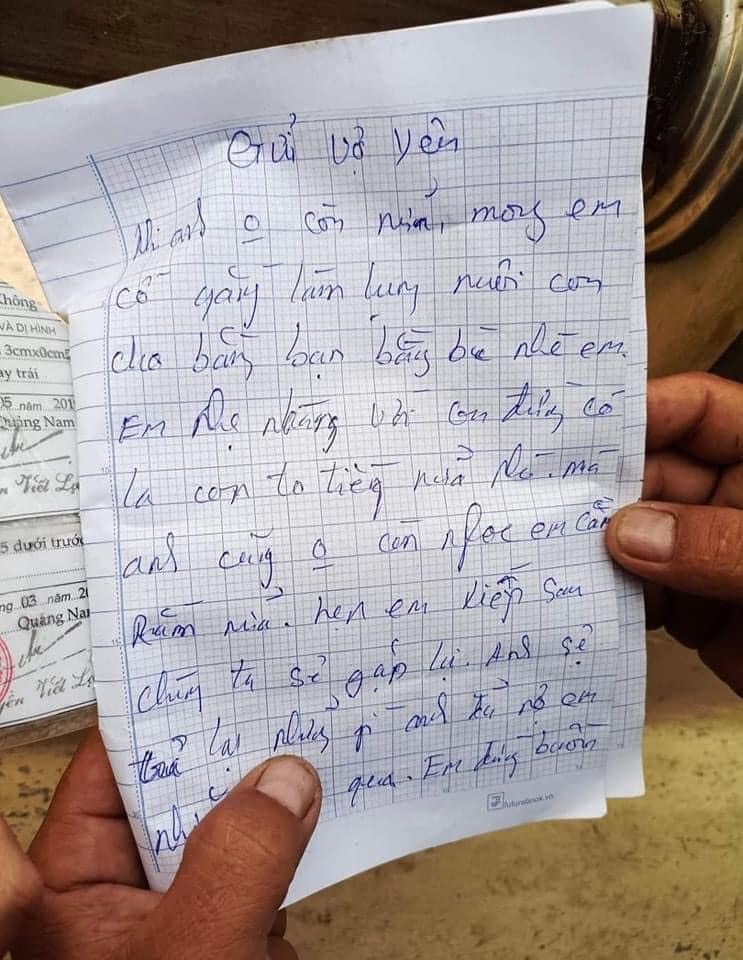 Gửi Vợ Yên
Khi anh o còn nữa, mong em
cố gắng làm lụng nuôi con
cho bằng bạn bằng bè nhé em.
Em nhẹ nhàng với con đừng có
la con to tiếng nữa nhé. mà
anh cũng o còn nghe em cằn
Rằn nữa. hẹn em kiếp sau
chúng ta sẽ gặp lại. Anh sẽ
trả lại những gì anh nợ em
qua. Em đừng buồn
futurebook.vn
Không
VÀ DỊ HÌNH
3cmx0cm5
ay trái
05 năm 201
Quảng Nam
Viết
5 dưới trước
ng 03 năm 20
Quảng Na
Viết